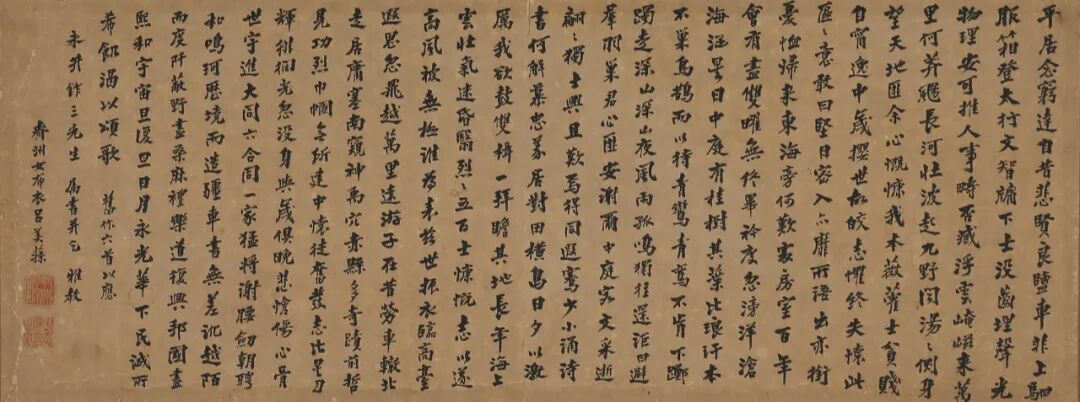 平居念窮達自昔悲賢良鹽車非上駟
服箱登太行文智牖下士没齒埋聲光
物理安可推人事畸否臧浮雲崦嵫来萬
里何莽繩長河壯波赴九野閃湯〻側身
望天地匪余心慨慷我本薇藿士貧賤
自宵逸中歲攖世故皎志懼終失懍此
區〻意敢曰堅日密入亦靡所語出亦銜
憂恤歸来東海旁何歎家房室百年
會有盡雙曜無終畢泠度忽滂洋滄
海涵景日中庭有桂樹其葉比琅玕本
不巢烏鵲而以待青鸞青鸞不肯下躑
躅走深山深山夜風雨孤鳴獨往還詎曰避
羣羽巢君心匪安謝爾中庭客文采逝
翩〻獨士興且歎焉得同遐騫少小誦詩
書何解慕忠義居對田橫島日夕以激
厲我欲鼓雙楫一拜瞻其地長年海上
雲壯氣迷昏翳烈〻五百士慷慨志以遂
高風被無極誰為来茲世振衣臨高臺
遐思忽飛越萬里遠游子在昔勞車轍北
走居庸塞南窺神禹穴赤縣多奇蹟前哲
見功烈巾幗無所建中懷徒奮發志比星月
輝徘徊光忽没身與歲俱晚悲愴傷心骨
世宇進大同六合同一家猛將謝腰劍朝聘
和鳴珂歷境而造疆車書無差訛越陌
而度阡蔽野盡桑麻禮樂道復興邦國盡
熙和宇宙旦復旦日月永光華下民誠所
希飢渴以頌歌 舊作六首以應
作三先生 屬書并乞 雅教
齊州女布衣呂美蓀